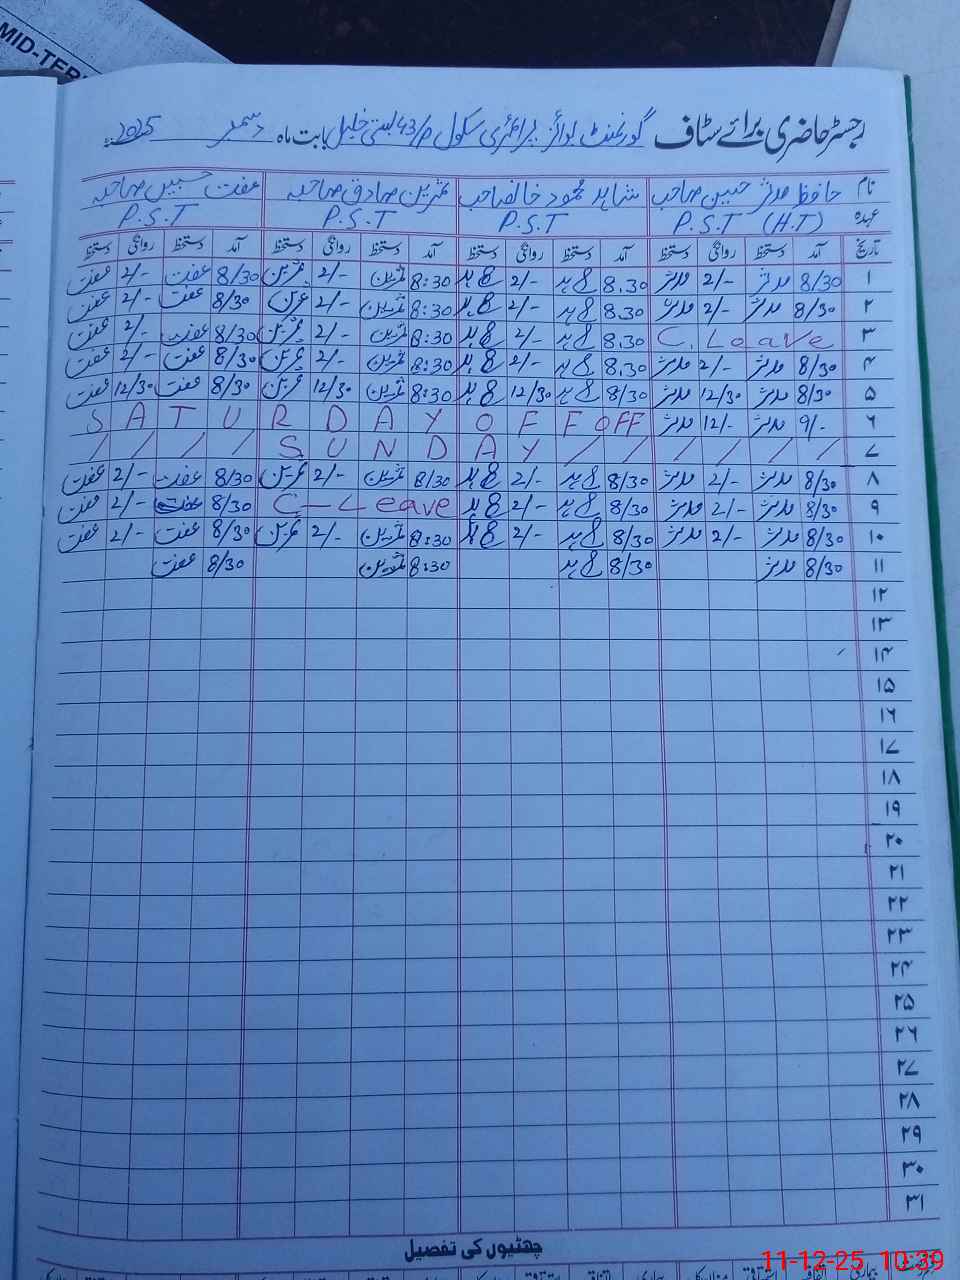 MID-TER
رجسٹر حاضری برائے سٹاف گورنمنٹ بوائز پرائمری سکول 43/م بستی خلیل بابت ماہ دسمبر 2025
نام حافظ مدثر حسین صاحب شاہد محمود خالد صاحب ثمرین صادق صاحبہ عفت حسین صاحبہ
عہدہ P.S.T (H.T) P.S.T P.S.T P.S.T
تاریخ آمد دستخط روانگی دستخط آمد دستخط روانگی دستخط آمد دستخط روانگی دستخط آمد دستخط روانگی دستخط
۱ 8/30 مدثر 2/- مدثر 8.30 شاہد 2/- شاہد 8:30 ثمرین 2/- ثمرین 8/30 عفت 2/- عفت
۲ 8/30 مدثر 2/- مدثر 8.30 شاہد 2/- شاہد 8:30 ثمرین 2/- ثمرین 8/30 عفت 2/- عفت
۳ C. Leave 8.30 شاہد 2/- شاہد 8:30 ثمرین 2/- ثمرین 8/30 عفت 2/- عفت
۴ 8/30 مدثر 2/- مدثر 8.30 شاہد 2/- شاہد 8:30 ثمرین 2/- ثمرین 8/30 عفت 2/- عفت
۵ 8/30 مدثر 12/30 مدثر 8/30 شاہد 12/30 شاہد 8:30 ثمرین 12/30 ثمرین 8/30 عفت 12/30 عفت
۶ 9/- مدثر 12/- مدثر SATURDAY OFF OFF
۷ / / / / / / SUNDAY / / / /
۸ 8/30 مدثر 2/- مدثر 8/30 شاہد 2/- شاہد 8/30 ثمرین 2/- ثمرین 8/30 عفت 2/- عفت
۹ 8/30 مدثر 2/- مدثر 8/30 شاہد 2/- شاہد C-Leave 8/30 عفت 2/- عفت
۱۰ 8/30 مدثر 2/- مدثر 8/30 شاہد 2/- شاہد 8:30 ثمرین 2/- ثمرین 8/30 عفت 2/- عفت
۱۱ 8/30 مدثر 8/30 شاہد 8:30 ثمرین 8/30 عفت
۱۲
۱۳
۱۴
۱۵
۱۶
۱۷
۱۸
۱۹
۲۰
۲۱
۲۲
۲۳
۲۴
۲۵
۲۶
۲۷
۲۸
۲۹
۳۰
۳۱
چھٹیوں کی تفصیل
11-12-25 10:39